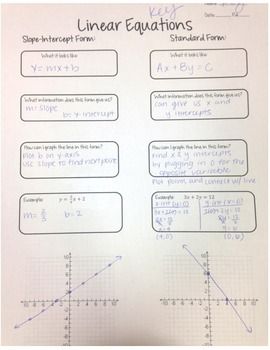 key
Date:
Linear Equations
Slope-Intercept Form:
Standard Form:
What it looks like
y = mx + b
What it looks like
Ax + By = C
What information does this form give us?
m: slope
b: y-intercept
What information does this form give us?
can give us x and
y intercepts
How can I graph the line in this form?
Plot b on y-axis
Use slope to find next point
How can I graph the line in this form?
Find x & y intercepts
by plugging in 0 for the
opposite variable
Plot points and connect w/ line
Example:
b = 2
Example: 3x + 2y = 12
x-int (y=0)
y-int (x=0)
(4, 0)
(0, 6)